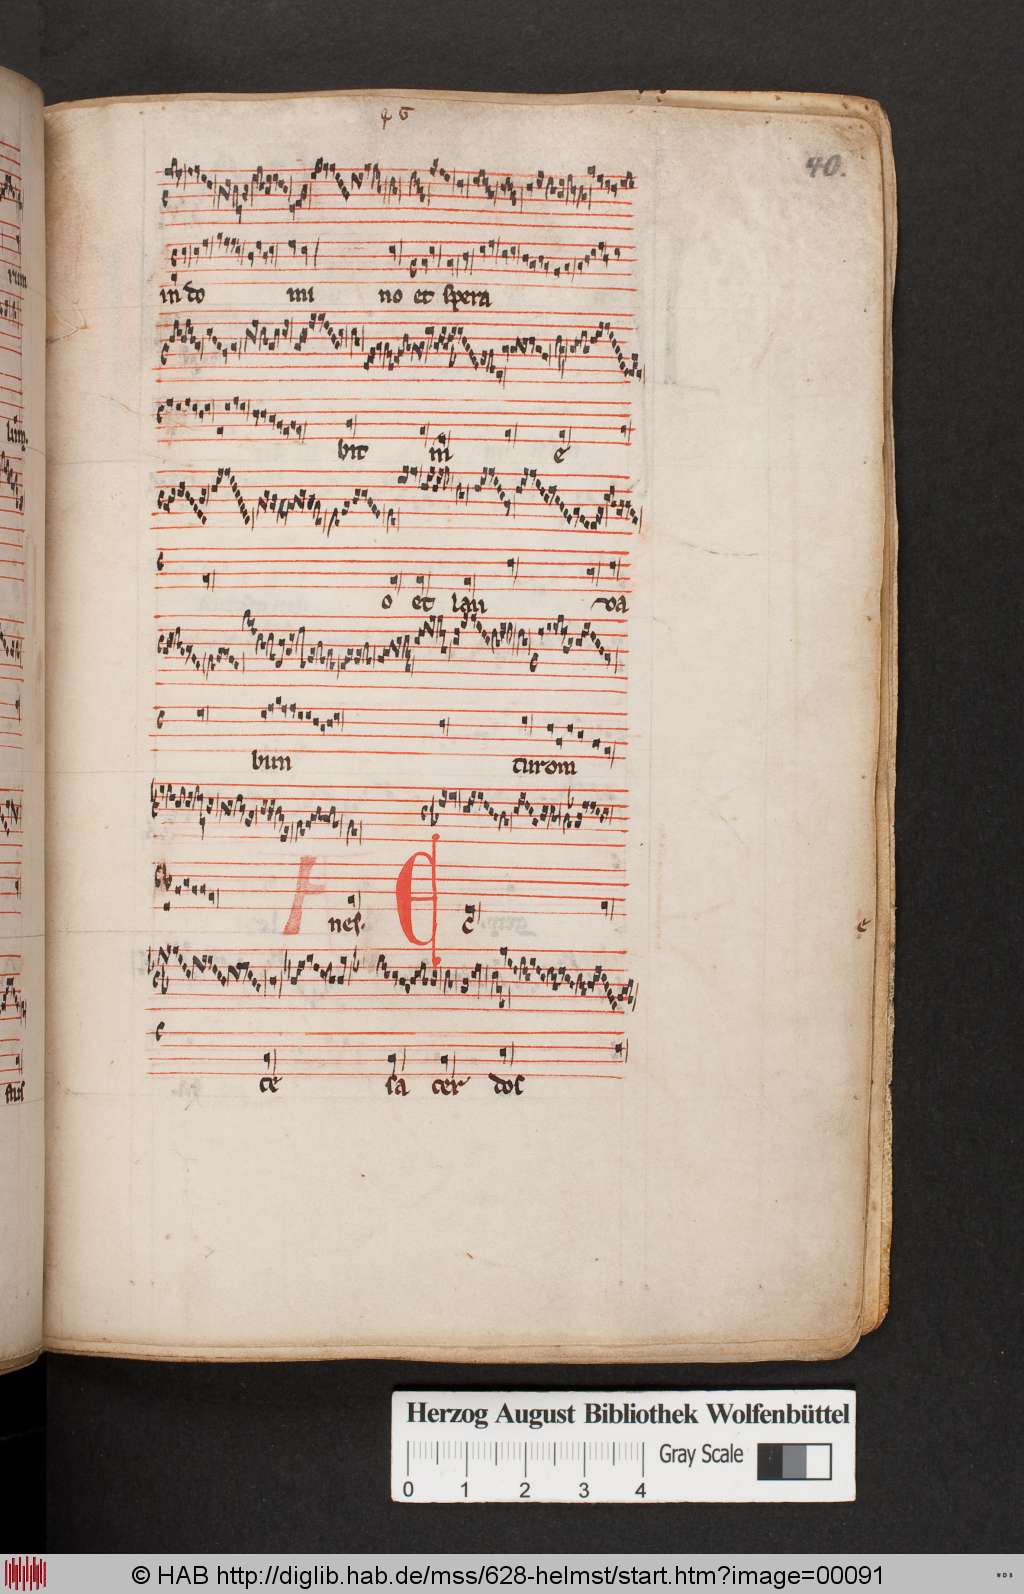 40.
in do mi no et spera
bit in e
o et lau va
bun turom
nes. E c
te sa cer dos
rum
stus
Herzog August Bibliothek Wolfenbüttel
Gray Scale
0 1 2 3 4
© HAB http://diglib.hab.de/mss/628-helmst/start.htm?image=00091